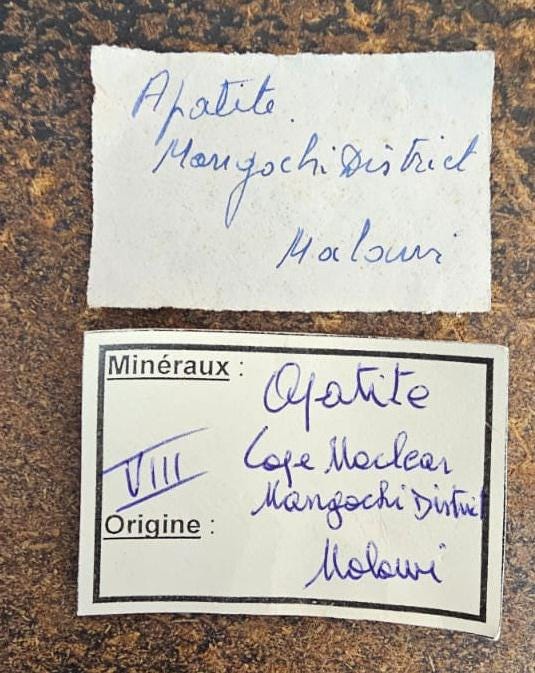 Apatite.
Mangochi District
Malawi
Minéraux :
Apatite
VIII
Cape Maclear
Mangochi District
Origine :
Malawi